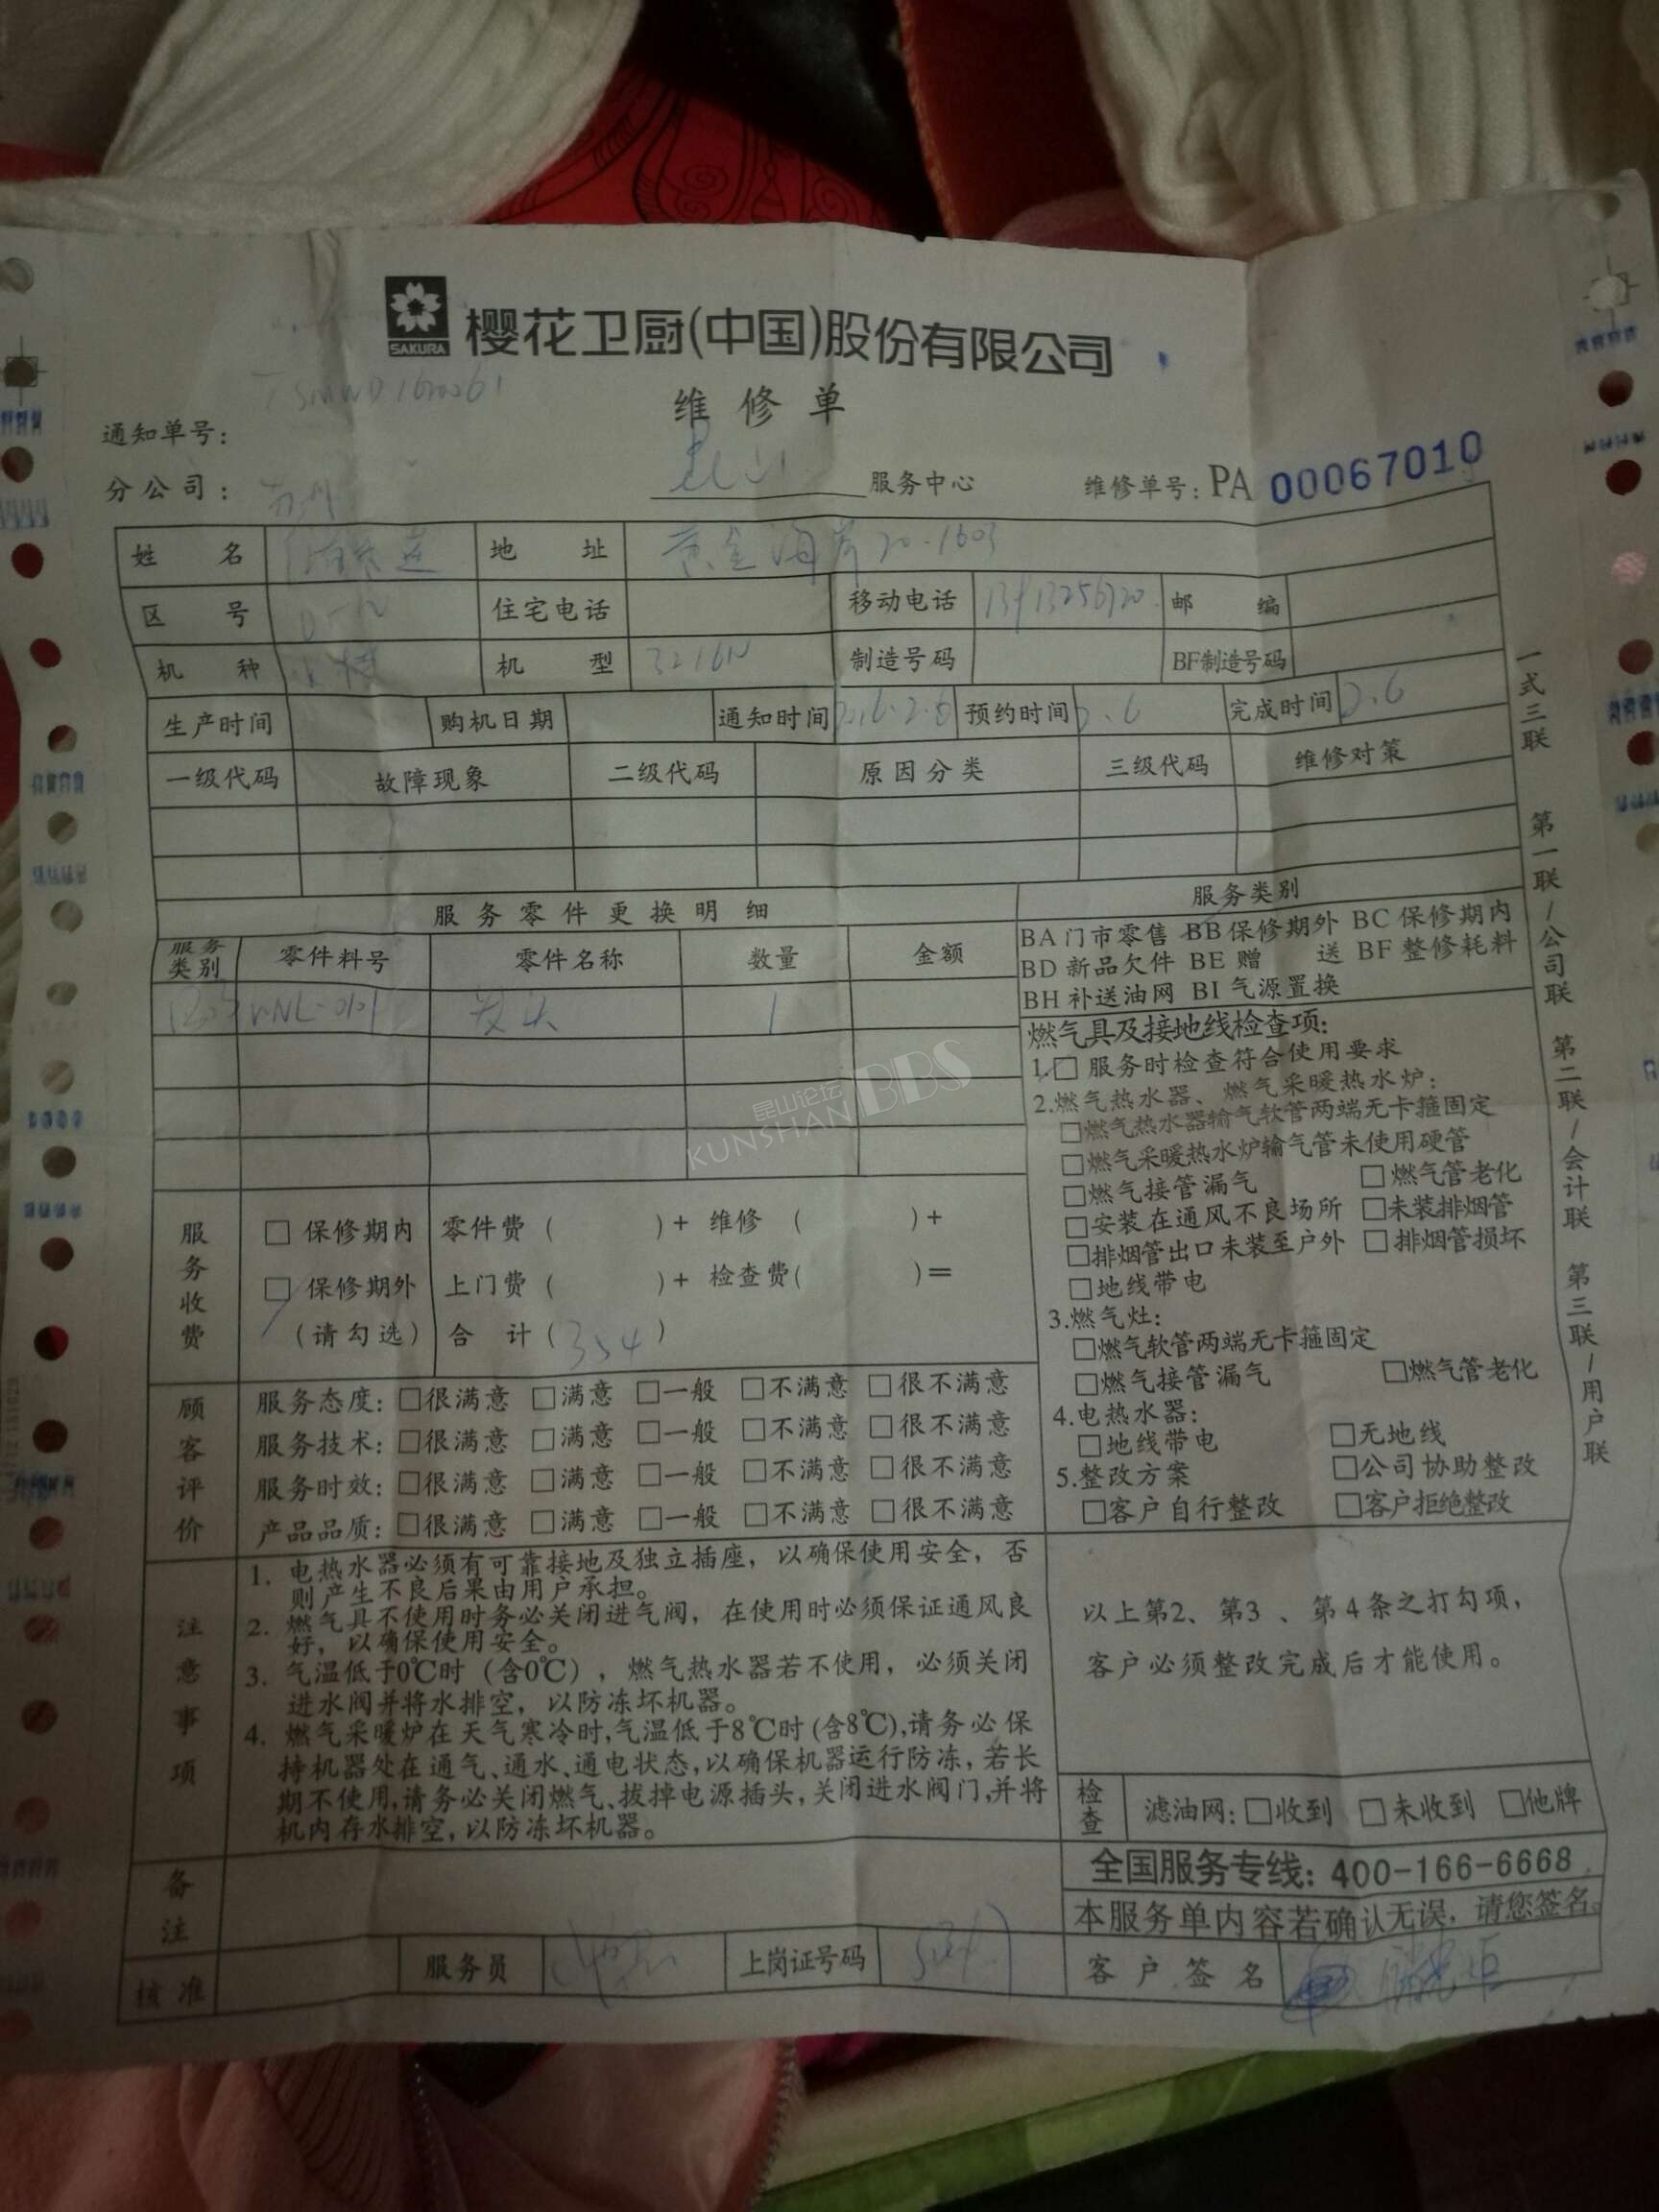 SAKURA 樱花卫厨(中国)股份有限公司
维修单
通知单号:
分公司: 苏州 昆山 服务中心 维修单号: PA 00067010
姓名 地址 黄金海岸20-1603
区号 住宅电话 移动电话 邮编
机种 机型 制造号码 BF制造号码
生产时间 购机日期 通知时间 2016.2.6 预约时间 2.6 完成时间 2.6
一级代码 故障现象 二级代码 原因分类 三级代码 维修对策
服务零件更换明细 服务类别
服务类别 零件料号 零件名称 数量 金额
1
BA门市零售 BB保修期外 BC保修期内
BD新品欠件 BE赠送 BF整修耗料
BH补送油网 BI气源置换
燃气具及接地线检查项:
1.□ 服务时检查符合使用要求
2.燃气热水器、燃气采暖热水炉:
□燃气热水器输气软管两端无卡箍固定
□燃气采暖热水炉输气管未使用硬管
□燃气接管漏气 □燃气管老化
□安装在通风不良场所 □未装排烟管
□排烟管出口未装至户外 □排烟管损坏
□地线带电
3.燃气灶:
□燃气软管两端无卡箍固定
□燃气接管漏气 □燃气管老化
4.电热水器:
□地线带电 □无地线
5.整改方案 □公司协助整改
□客户自行整改 □客户拒绝整改
服务收费
□ 保修期内 零件费( )+ 维修( )+
□ 保修期外 上门费( )+ 检查费( )=
(请勾选) 合计(354)
顾客评价
服务态度: □很满意 □满意 □一般 □不满意 □很不满意
服务技术: □很满意 □满意 □一般 □不满意 □很不满意
服务时效: □很满意 □满意 □一般 □不满意 □很不满意
产品品质: □很满意 □满意 □一般 □不满意 □很不满意
注意事项
1. 电热水器必须有可靠接地及独立插座,以确保使用安全,否
则产生不良后果由用户承担。
2. 燃气具不使用时务必关闭进气阀,在使用时必须保证通风良
好,以确保使用安全。
3. 气温低于0℃时(含0℃),燃气热水器若不使用,必须关闭
进水阀并将水排空,以防冻坏机器。
4. 燃气采暖炉在天气寒冷时,气温低于8℃时(含8℃),请务必保
持机器处在通气、通水、通电状态,以确保机器运行防冻,若长
期不使用,请务必关闭燃气、拔掉电源插头,关闭进水阀门,并将
机内存水排空,以防冻坏机器。
以上第2、第3、第4条之打勾项,
客户必须整改完成后才能使用。
检查 滤油网: □收到 □未收到 □他牌
备注
全国服务专线: 400-166-6668
本服务单内容若确认无误,请您签名。
核准 服务员 上岗证号码 客户签名
一式三联 第一联/公司联 第二联/会计联 第三联/用户联
昆山论坛
KUNSHAN BBS